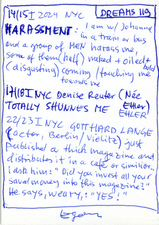 14/15 I 2024 NYC
DREAMS 119
HARASSMENT: I am w/ Johanna
in a tram or bus
and a group of MEN harass me,
some of them (half) naked + oiled
(disgusting) coming/touching me
towards me
17/18 I NYC Denise Reuter (Née
TOTALLY SHUNNES ME EHLER)
22/23 I NYC GOTTHARD LANGE
(actor, Berlin/Vielitz) just
published a thick magazine and
distributes it in a café or similar,
I ask him: "Did you invest all your
saved money into this magazine?"
He says, weary: "YES!"